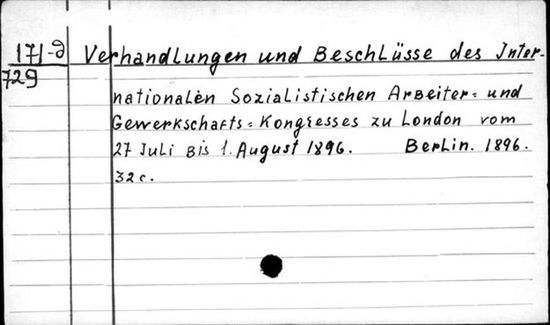 171-д Verhandlungen und Beschlüsse des Inter-
729
nationalen Sozialistischen Arbeiter= und
Gewerkschafts=Kongresses zu London vom
27 Juli bis 1. August 1896. Berlin. 1896.
32 c.